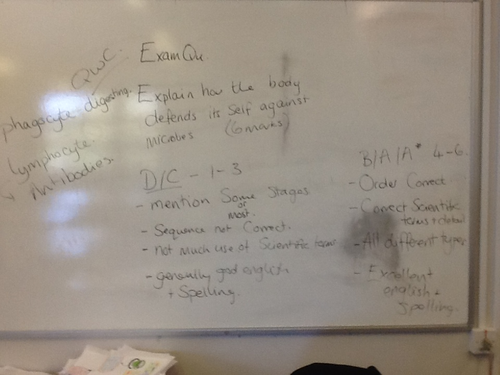 QWC.
phagocyte digesting.
lymphocyte.
Antibodies
Exam Qu.
Explain how the body
defends its self against
microbes (6 marks)
D/C - 1-3
- mention Some Stages
or
most.
- Sequence not Correct.
- not much use of Scientific terms
- generally good english
+ Spelling.
B/A/A* 4-6.
- Order Correct
- Correct Scientific
terms + detail
- All different types
- Excellent
english +
spelling.